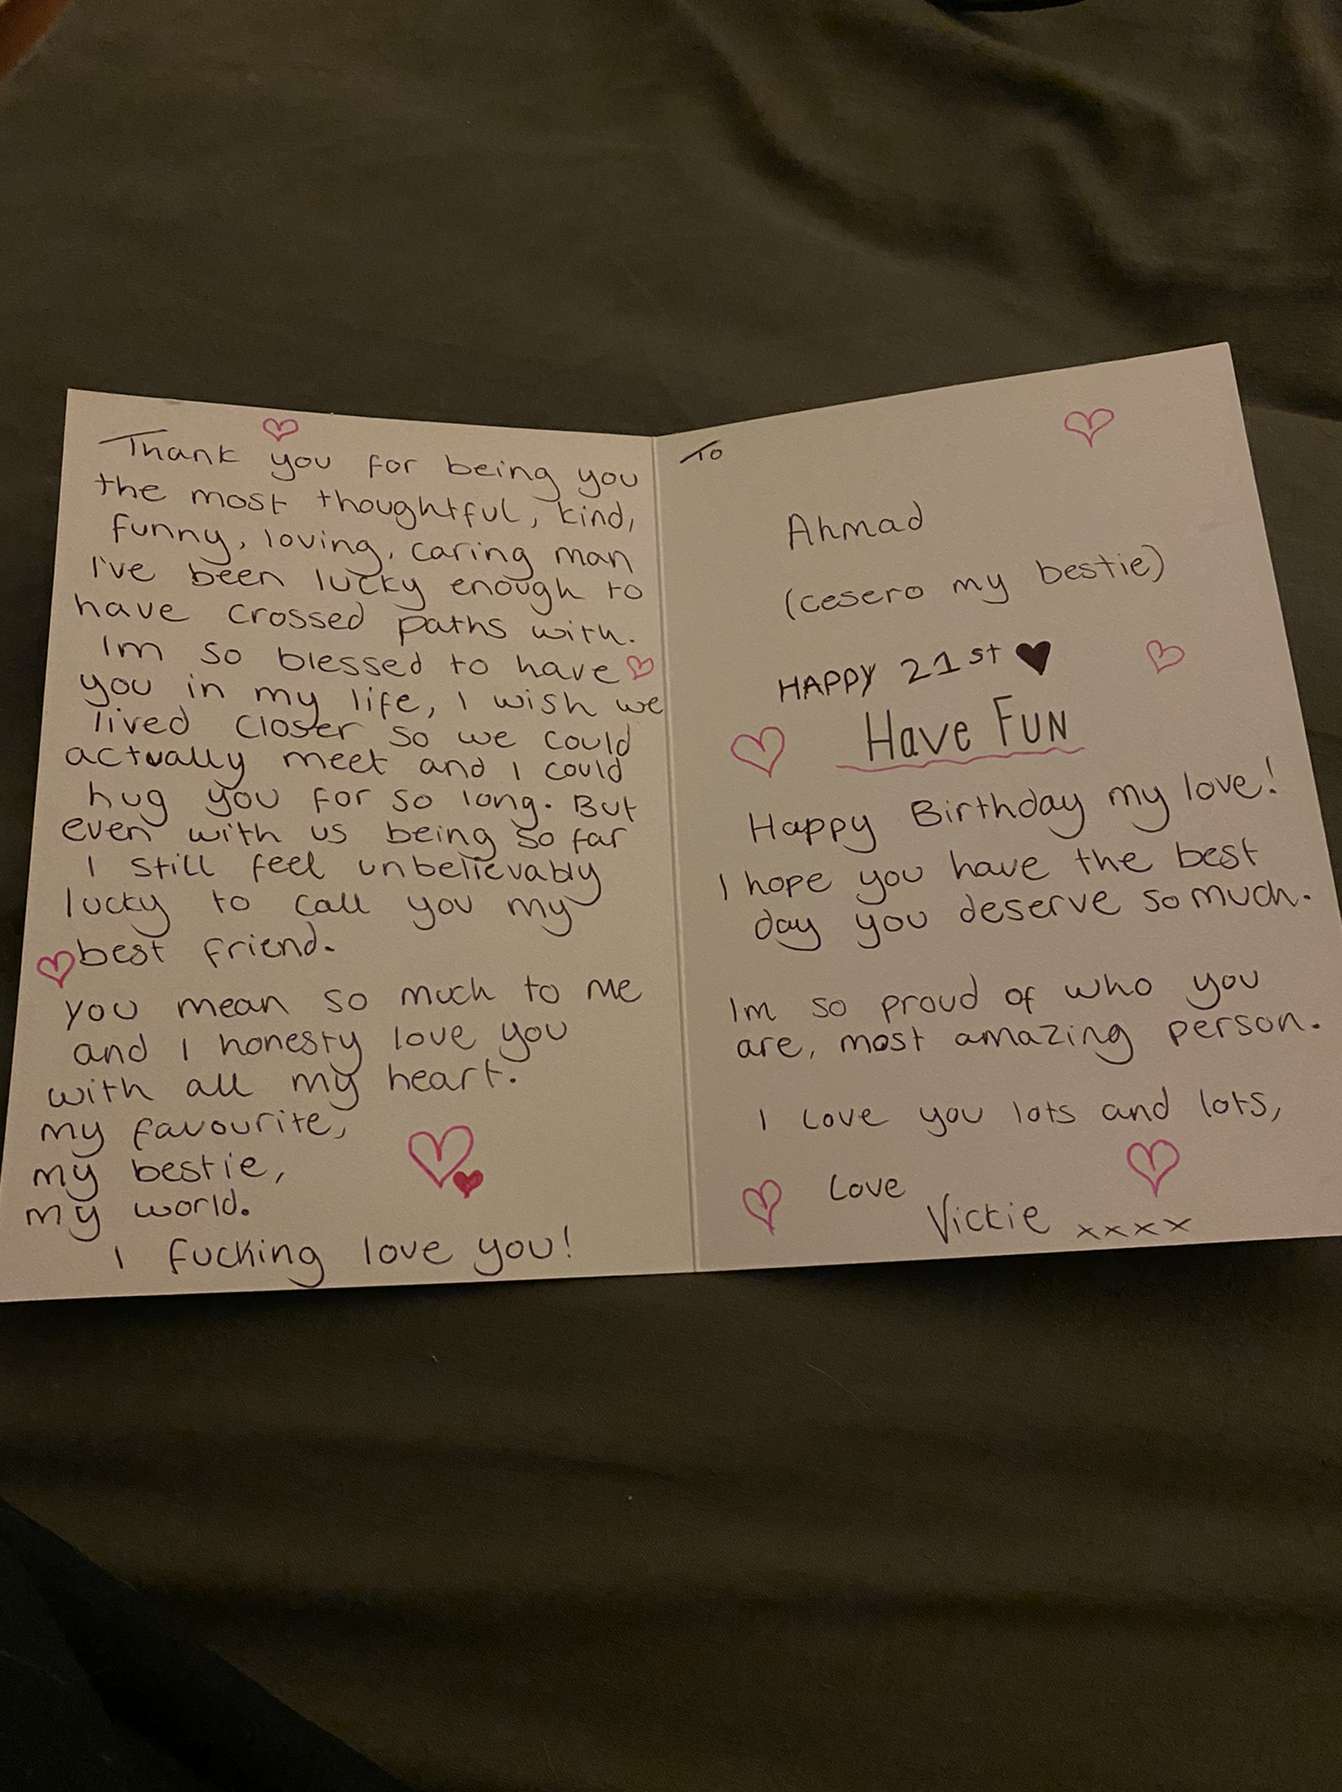 Thank you for being you
the most thoughtful, kind,
funny, loving, caring man
I've been lucky enough to
have crossed paths with.
Im so blessed to have
you in my life, I wish we
lived closer so we could
actually meet and I could
hug you for so long. But
even with us being so far
I still feel unbelievably
lucky to call you my
best friend.
You mean so much to me
and I honesty love you
with all my heart.
my favourite,
my bestie,
my world.
I fucking love you!
To
Ahmad
(cesero my bestie)
HAPPY 21st
Have FUN
Happy Birthday my love!
I hope you have the best
day you deserve so much.
Im so proud of who you
are, most amazing person.
I love you lots and lots,
Love
Vickie xxxx